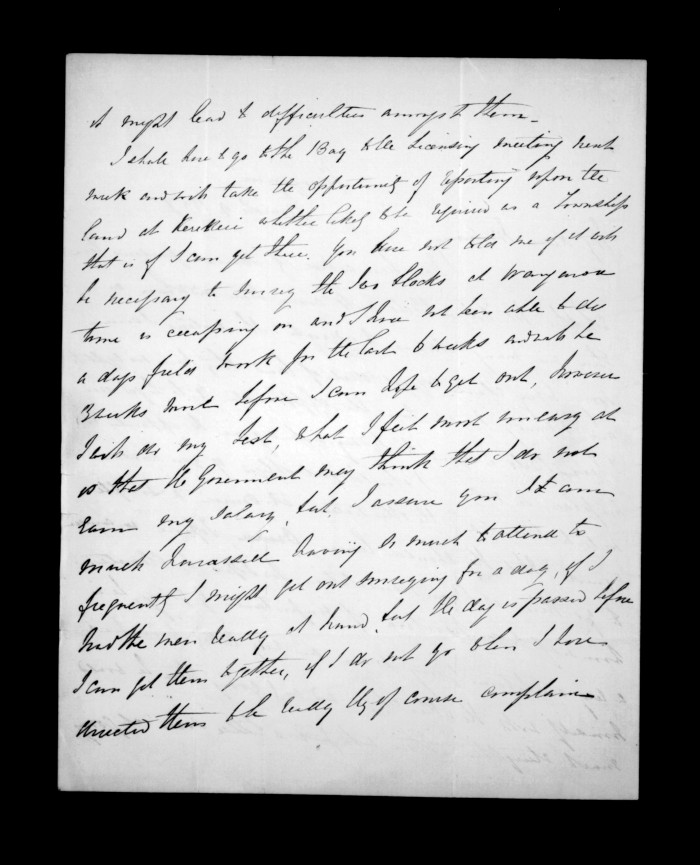 it might lead to difficulties amongst them -
I shall have to go to the Bay to the Licensing meeting next
week and will take the opportunity of reporting upon the
land at Kerikeri whether likely to be required as a Township
that is if I can get there. You have not told me if it will
be necessary to survey the two blocks at
time is on and I have not been able to do
a days field work for the last 6 weeks and will be
3 weeks more before I can hope to get out, however
I will do my best, what I feel most uneasy at
is that the Government may think that I do not
earn my salary, but I assure you I am
much harassed having so much to attend to
frequently I might get out surveying for a day, if I
had the men ready at hand, but the day is passed before
I can get them together, if I do not go when I have
directed them to be ready they of course complain